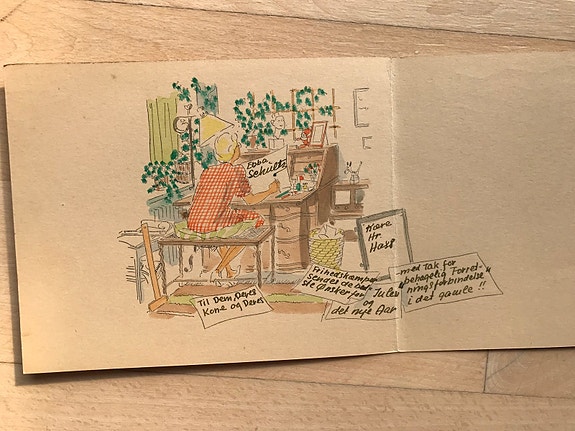 Ebba
Schultz
Kære
Hr.
Til Dem, Deres
Kone og Deres
Frihedskæmper
sendes de bed-
ste Ønsker for Julen
og
det nye Aar
med tak for
"behagelig Forret-
ningsforbindelse"
i det gamle !!